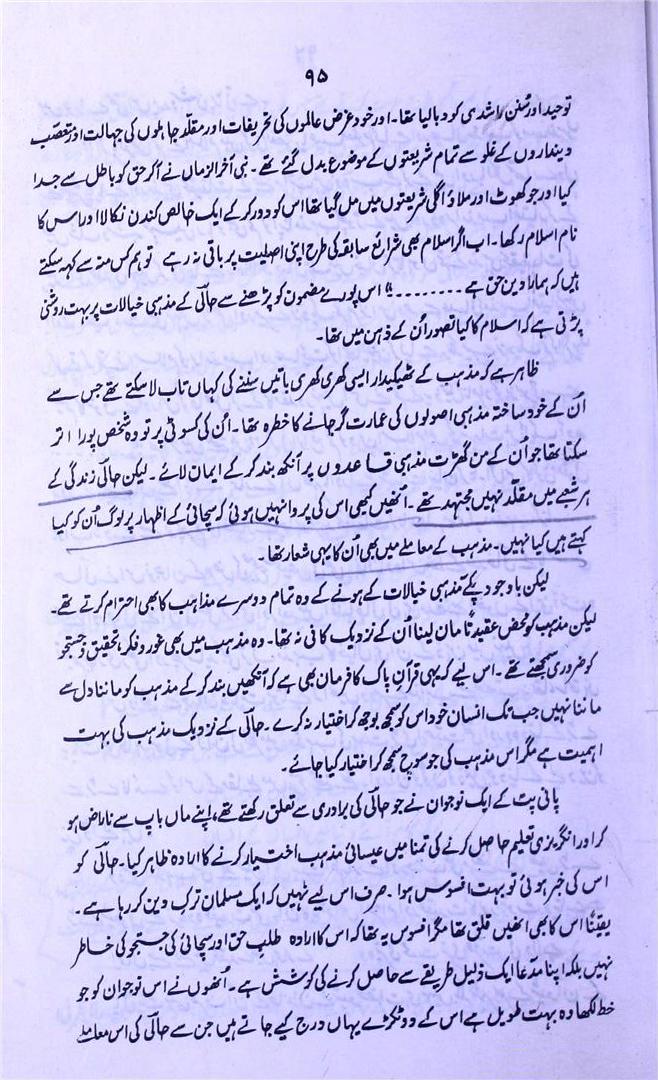 ۹۵
توحید اور سُنن راشدی کو دبا لیا تھا۔ اور خود غرض عالموں کی تحریفات اور مقلّد جاہلوں کی جہالت اور تعصّب
دینداروں کے غلو سے تمام شریعتوں کے موضوع بدل گئے تھے۔ نبی آخر الزماں نے آکر حق کو باطل سے جدا
کیا اور جو کھوٹ اور ملاؤ اگلی شریعتوں میں مل گیا تھا اس کو دور کر کے ایک خالص کندن نکالا اور اس کا
نام اسلام رکھا۔ اب اگر اسلام بھی شرائع سابقہ کی طرح اپنی اصلیت پر باقی نہ رہے تو ہم کس منہ سے کہہ سکتے
ہیں کہ ہمارا دین حق ہے ........" اس پورے مضمون کو پڑھنے سے حالیؔ کے مذہبی خیالات پر بہت روشنی
پڑتی ہے کہ اسلام کا کیا تصور اُن کے ذہن میں تھا۔
ظاہر ہے کہ مذہب کے ٹھیکیدار ایسی کھری کھری باتیں سننے کی کہاں تاب لا سکتے تھے جس سے
اُن کے خود ساختہ مذہبی اصولوں کی عمارت گر جانے کا خطرہ تھا۔ اُن کی کسوٹی پر تو وہ شخص پورا اتر
سکتا تھا جو اُن کے من گھڑت مذہبی قاعدوں پر آنکھ بند کر کے ایمان لائے۔ لیکن حالیؔ زندگی کے
ہر شعبے میں مقلّد نہیں مجتہد تھے۔ انھیں کبھی اس کی پروا نہیں ہوئی کہ سچائی کے اظہار پر لوگ اُن کو کیا
کہتے ہیں کیا نہیں۔ مذہب کے معاملے میں بھی اُن کا یہی شعار تھا۔
لیکن باوجود پکے مذہبی خیالات کے ہونے کے وہ تمام دوسرے مذاہب کا بھی احترام کرتے تھے۔
لیکن مذہب کو محض عقیدتاً مان لینا اُن کے نزدیک کافی نہ تھا۔ وہ مذہب میں بھی غور و فکر، تحقیق و جستجو
کو ضروری سمجھتے تھے۔ اس لیے کہ یہی قرآنِ پاک کا فرمان بھی ہے کہ آنکھیں بند کر کے مذہب کو ماننا دل سے
ماننا نہیں جب تک انسان خود اس کو سمجھ بوجھ کر اختیار نہ کرے۔ حالیؔ کے نزدیک مذہب کی بہت
اہمیت ہے مگر اس مذہب کی جو سوچ سمجھ کر اختیار کیا جائے۔
پانی پت کے ایک نوجوان نے جو حالیؔ کی برادری سے تعلق رکھتے تھے، اپنے ماں باپ سے ناراض ہو
کر اور انگریزی تعلیم حاصل کرنے کی تمنا میں عیسائی مذہب اختیار کرنے کا ارادہ ظاہر کیا۔ حالیؔ کو
اس کی خبر ہوئی تو بہت افسوس ہوا۔ صرف اس لیے نہیں کہ ایک مسلمان ترک دین کر رہا ہے۔
یقیناً اس کا بھی انھیں قلق تھا مگر افسوس یہ تھا کہ اس کا ارادہ طلبِ حق اور سچائی کی جستجو کی خاطر
نہیں بلکہ اپنا مدّعا ایک ذلیل طریقے سے حاصل کرنے کی کوشش ہے۔ اُنھوں نے اس نوجوان کو جو
خط لکھا وہ بہت طویل ہے اس کے دو ٹکڑے یہاں درج کیے جاتے ہیں جن سے حالیؔ کی اس معاملے